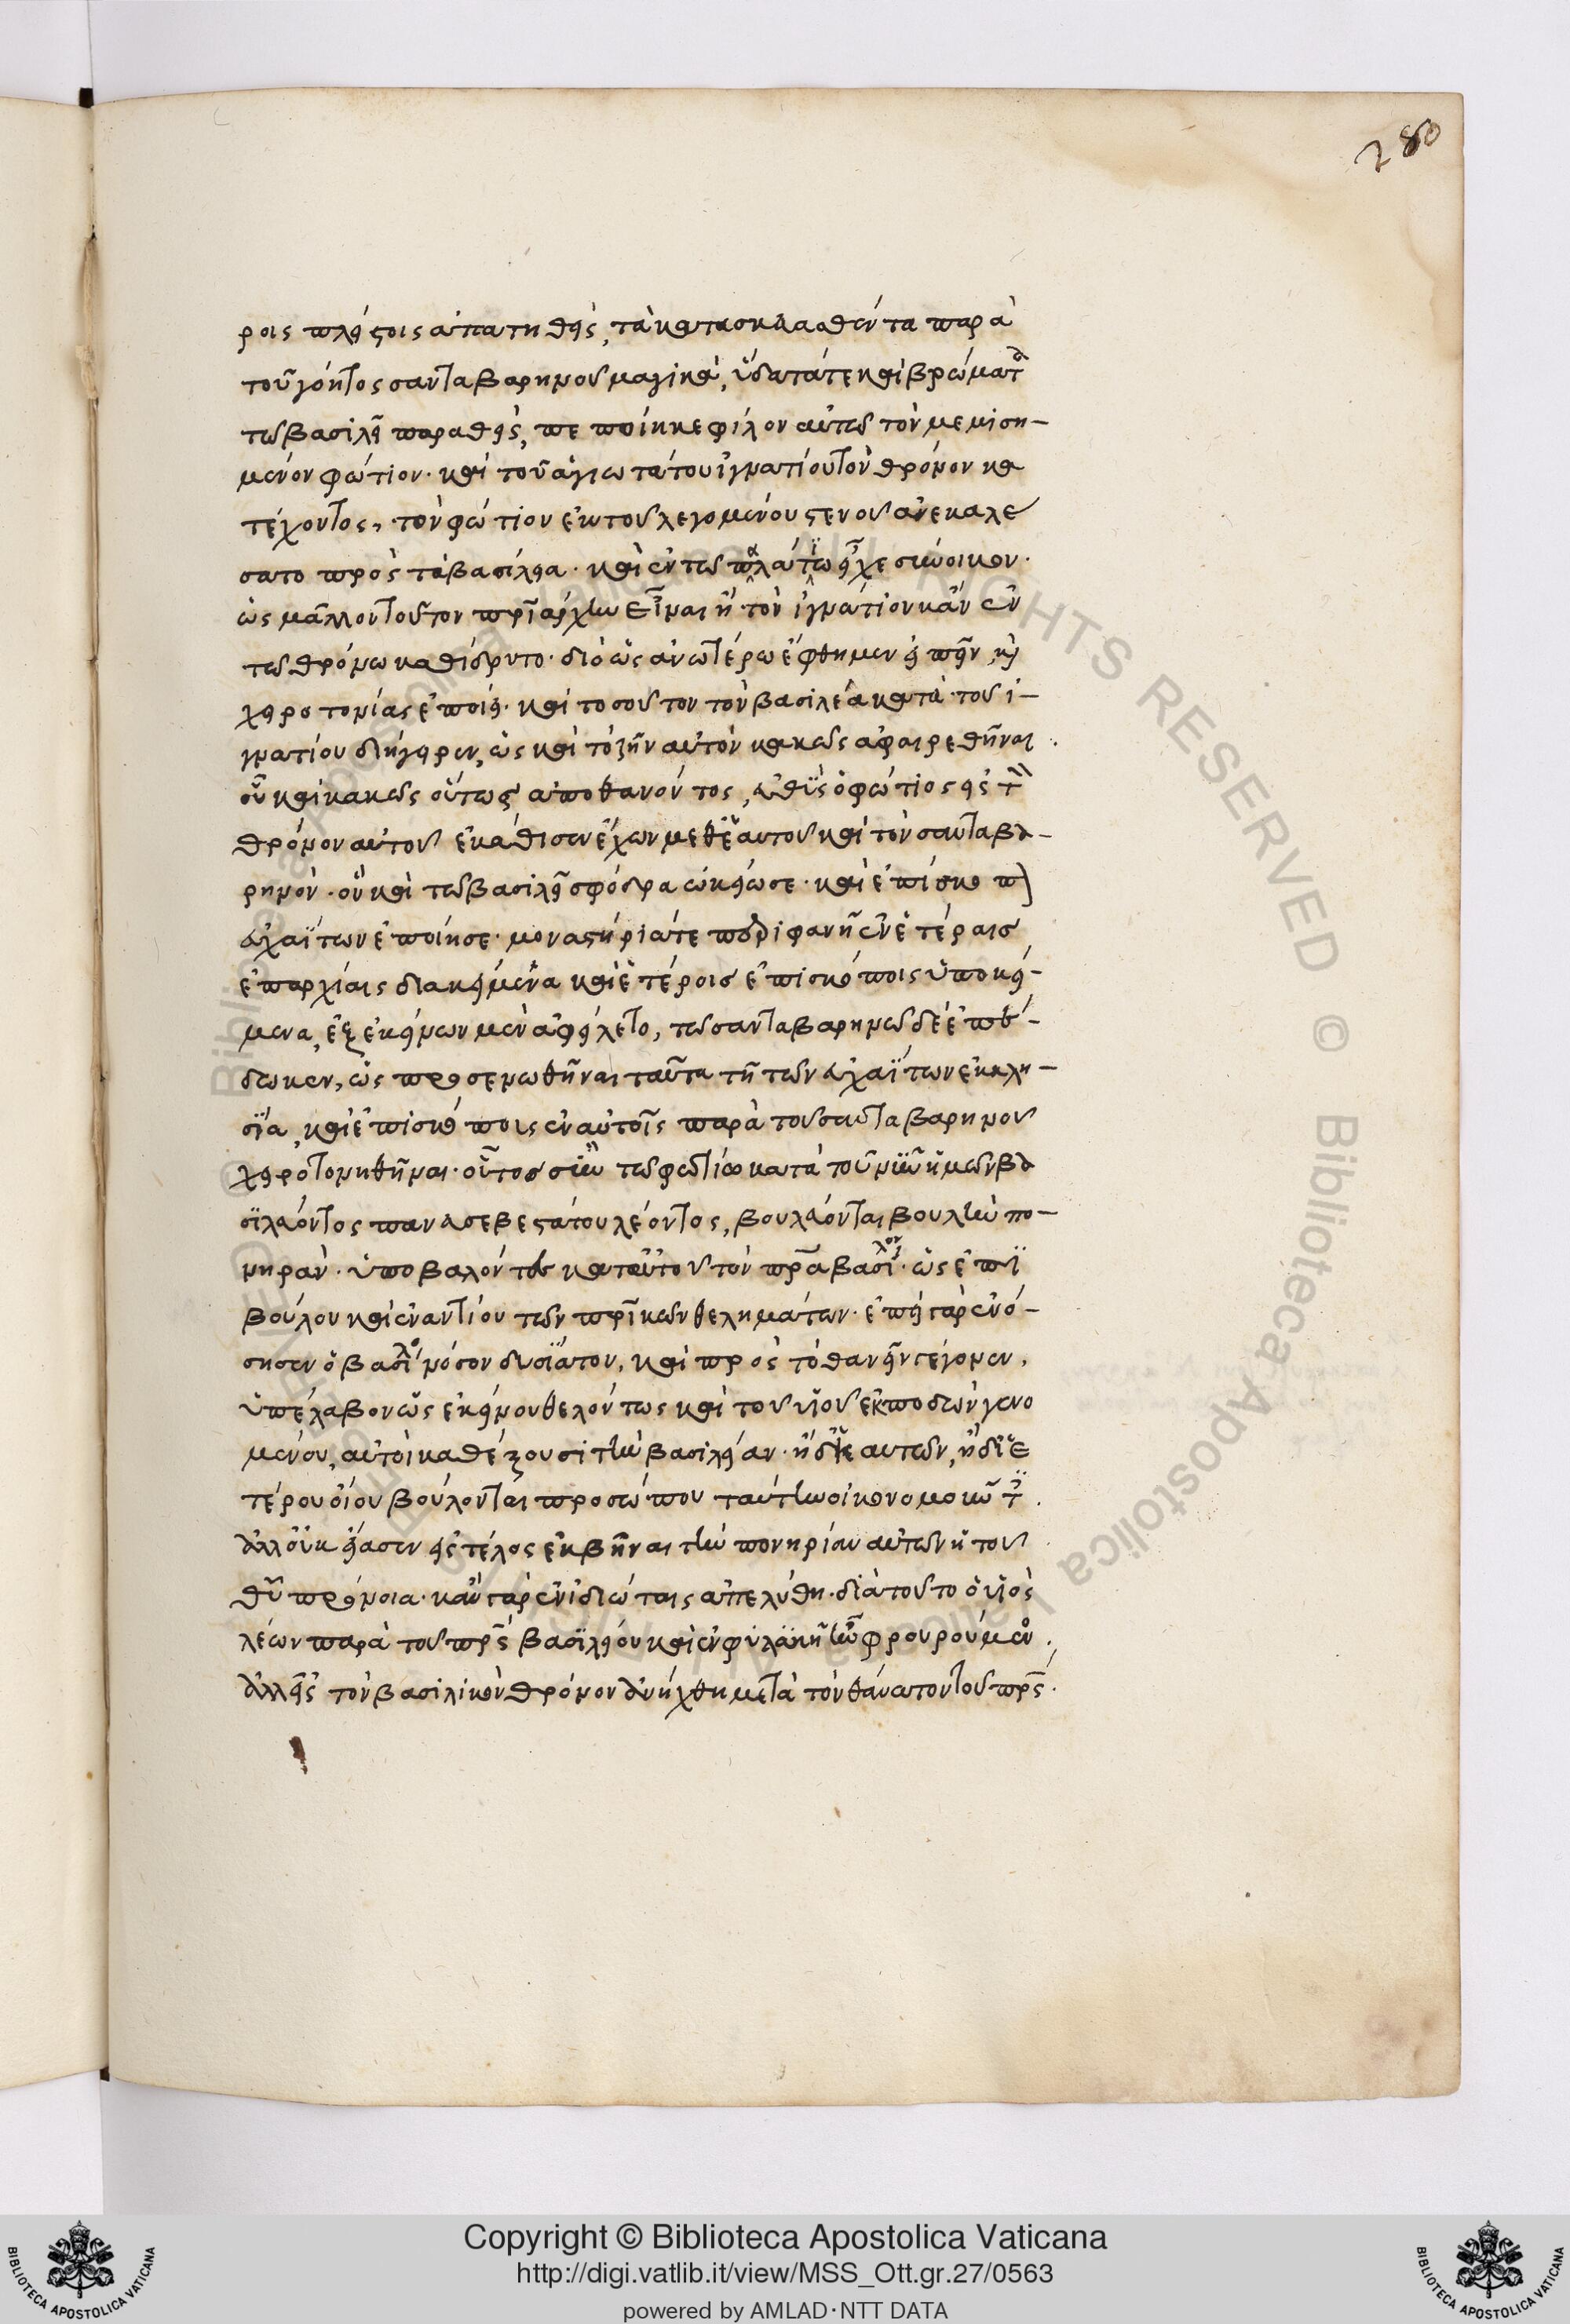 280
ροις πλείστοις ἀπατηθεὶς, τὰ κατασκευασθέντα παρὰ
τοῦ γόητος σανταβαρηνοῦ μαγικὰ, ὕδατά τε καὶ βρώματα
τῶ βασιλεῖ παραθεὶς, πεποίηκε φίλον αὐτῶ τὸν μεμιση-
μένον φώτιον· καὶ τοῦ ἁγιωτάτου ἰγνατίου τὸν θρόνον κα
τέχοντος, τὸν φώτιον ἐκ τοῦ λεγομένου στενοῦ ἀνεκαλέ
σατο πρὸς τὰ βασίλεια· καὶ ἐν τῶ παλατίω εἶχε σύνοικον·
ὡς μᾶλλον τοῦτον πριάρχην εἶναι ἢ τὸν ἰγνάτιον κἂν ἐν
τῶ θρόνω καθίδρυτο· διὸ ὡς ἀνωτέρω ἔφθημεν εἰπεῖν, καὶ
χειροτονίας ἐποίει· καὶ τοσοῦτον τὸν βασιλέα κατὰ τοῦ ἰ-
γνατίου διήγειρεν, ὡς καὶ τὸ ζῆν αὐτὸν κακῶς ἀφαιρεθῆναι.
οὗ καὶ κακῶς οὕτως ἀποθανόντος, εὐθὺς ὁ φώτιος εἰς τὸν
θρόνον αὐτοῦ ἐκάθισεν ἔχων μεθ' ἑαυτοῦ καὶ τὸν σανταβα-
ρηνόν· ὃν καὶ τῶ βασιλεῖ σφόδρα ὠκείωσε· καὶ ἐπίσκοπον
εὐχαΐτων ἐποίησε· μοναστήριά τε περιφανῆ ἐν ἑτέραις
ἐπαρχίαις διακείμενα καὶ ἑτέροις ἐπισκόποις ὑποκεί-
μενα, ἐξ ἐκείνων μὲν ἀφείλετο, τῶ σανταβαρηνῶ δὲ ἐπέ-
δωκεν, ὡς προσενωθῆναι ταῦτα τῆ τῶν εὐχαΐτων ἐκκλη-
σία, καὶ ἐπισκόποις ἐν αὐτοῖς παρὰ τοῦ σανταβαρηνοῦ
χειροτονηθῆναι· οὗτος σὺν τῶ φωτίω κατὰ τοῦ νῦν ἡμῶν βα
σιλεύοντος πανευσεβεστάτου λέοντος, βουλεύονται βουλὴν πο-
νηράν· ὑποβαλόντες κατ' αὐτοῦ τὸν πρα βασιλέως· ὡς ἐπι
βούλου καὶ ἐναντίου τῶν πρικῶν θελημάτων· ἐπεὶ γὰρ ἐνό-
σησεν ὁ βασιλεὺς νόσον δυσίατον, καὶ πρὸς τὸ θανεῖν τείνουσαν,
ὑπέλαβον ὡς ἐκείνου θελόντως καὶ τοῦ υἱοῦ ἐκποδὼν γενο
μένου, αὐτοὶ καθέξουσι τὴν βασιλείαν· ἢ δι' ἑαυτῶν, ἢ δι' ἑ
τέρου οἵου βούλονται προσώπου ταύτην οἰκονομοῦντες.
ἀλλ' οὐκ εἴασεν εἰς τέλος ἐκβῆναι τὴν πονηρίαν αὐτῶν ἡ τοῦ
θυ πρόνοια· κἂν γὰρ ἐν ἰδιώταις ἀπελύθη· διὰ τοῦτο ὁ υἱὸς
λέων παρὰ τοῦ πρς βασιλείου καὶ ἐν φυλακῆ ἦν φρουρούμενος,
ἀλλ' εἰς τὸν βασιλικὸν θρόνον ἀνήχθη μετὰ τὸν θάνατον τοῦ πρς.
Copyright © Biblioteca Apostolica Vaticana
http://digi.vatlib.it/view/MSS_Ott.gr.27/0563
powered by AMLAD·NTT DATA